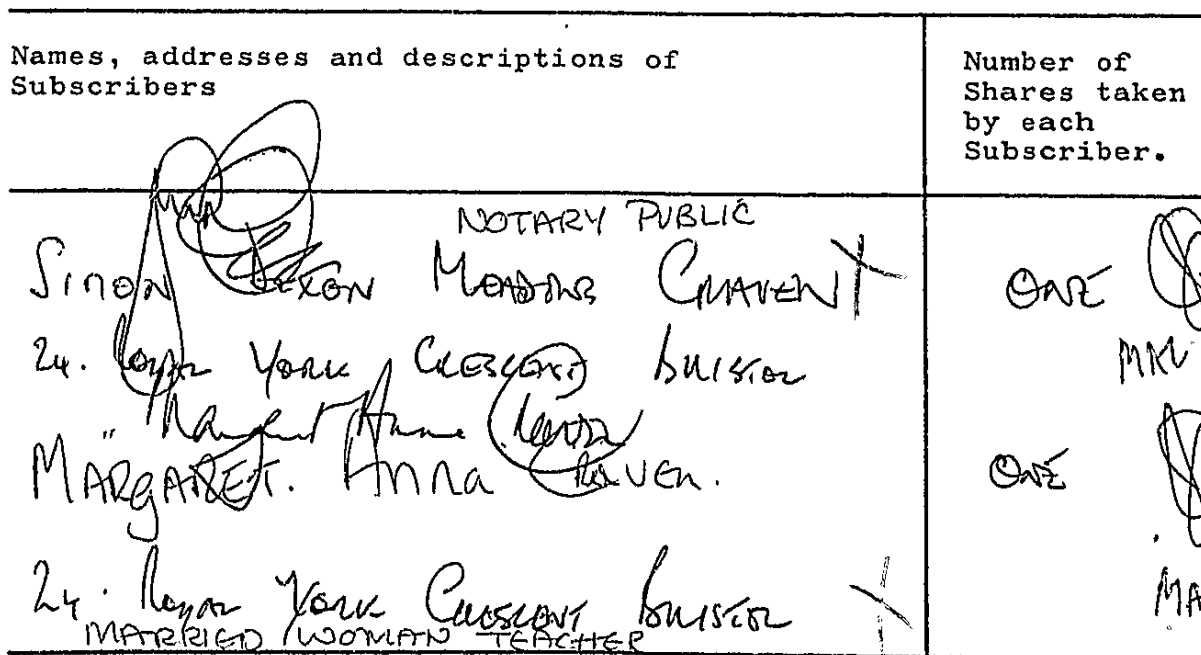 Names, addresses and descriptions of
Subscribers
Number of
Shares taken
by each
Subscriber.
NOTARY PUBLIC
SIMON DEXON MEADOWS CRAVEN
ONE
24. ROYAL YORK CRESCENT BRISTOL
MRS
Margaret Anna Craven
MARGARET. Anna CRAVEN.
ONE
24. ROYAL YORK CRESCENT BRISTOL
MARRIED WOMAN TEACHER
MA